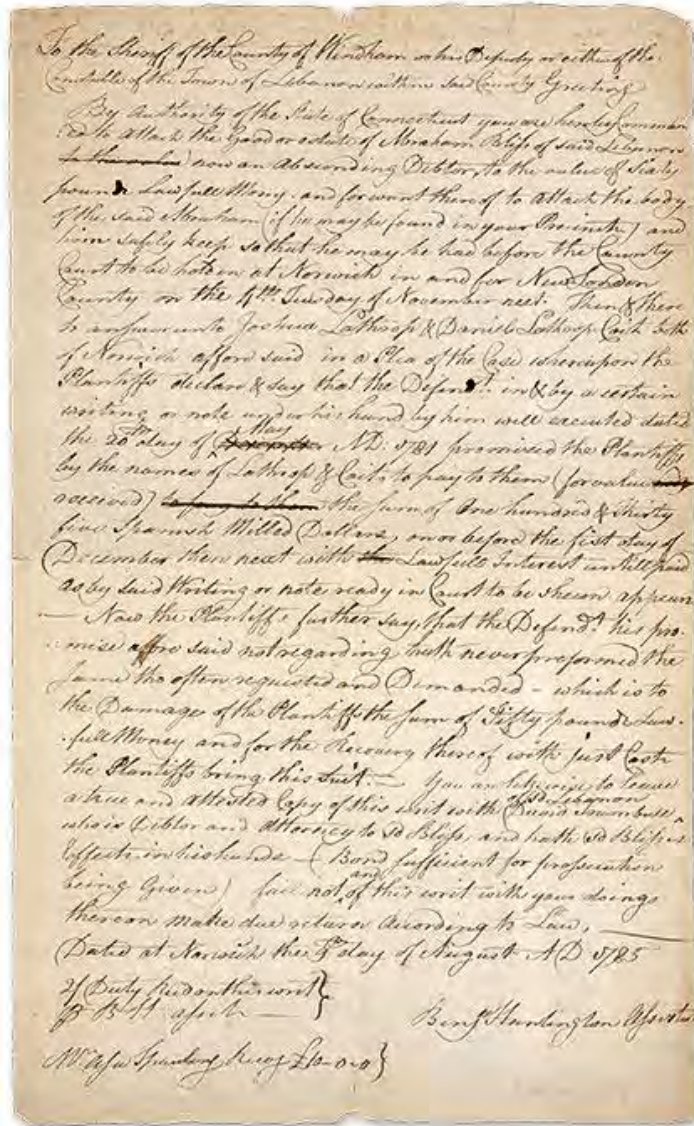 To the Sheriff of the County of Windham or his Deputy or either of the
Constable of the Town of Lebanon within said County Greeting
By Authority of the State of Connecticut you are hereby Comman
ed to attach the Good or estate of Abraham Bliss of said Lebanon
to the value now an Absconding Debtor, to the value of Sixty
pounds Lawfull Mony. and for want thereof to Attach the body
of the said Abraham (if he may be found in your Precincts) and
him safely keep so that he may be had before the County
Court to be holden at Norwich in and for New London
County on the 4th Tuesday of November next. Then & there
to answer unto Joshua Lathrop & Daniel Lathrop Coit both
of Norwich afforesaid in a Plea of the Case whereupon the
Plantiffs declare & say that the Defendt. in & by a certain
writing or note under his hand by him well executed dated
the 20th day of May AD. 1781 promised the Plantiffs
by the names of Lathrop & Coit to pay to them (for value
received) to pay to them the sum of One hundred & thirty
five Spanish Milled Dollars, on or before the first day of
December then next with the Lawfull Interest untill paid
as by said Writing or note ready in Court to be shewn appears
Now the Plantiffs further say, that the Defendt. his pro-
mise affore said not regarding hath never preformed the
same tho often requested and Demanded - which is to
the Damage of the Plantiffs the sum of Fifty pounds Law-
full Money and for the Recovery thereof with just Costs
the Plantiffs bring this Suit. - You are likewise to leave
a true and attested Copy of this writ with David Trumbull
of sd Lebanon
who is Debtor and Attorney to sd Bliss, and hath sd Bliss's
Effects in his hands - (Bond sufficient for prosecution
being Given) fail not and of this writ with your doings
thereon make due return According to Law,
Dated at Norwich the day of August AD 1785
2/ Duty paid on this writ
Benjn Huntington Assistt
Mr. Asa Spaulding Recog £10-0-0